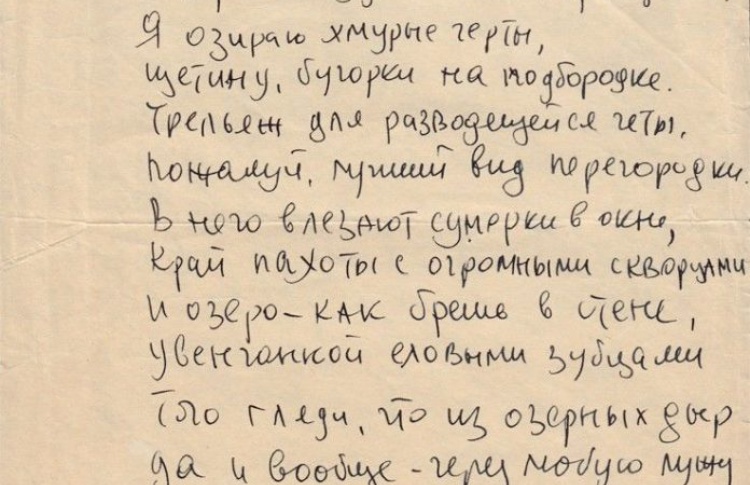 Я озираю хмурые черты,
щетину, бугорки на подбородке.
Трельяж для разводящейся четы,
пожалуй, лучший вид перегородки.
В него влезают сумерки в окне,
край пахоты с огромными скворцами
и озеро – как брешь в стене,
увенчанной еловыми зубцами
Того гляди, что из озерных дыр
да и вообще – через любую лужу